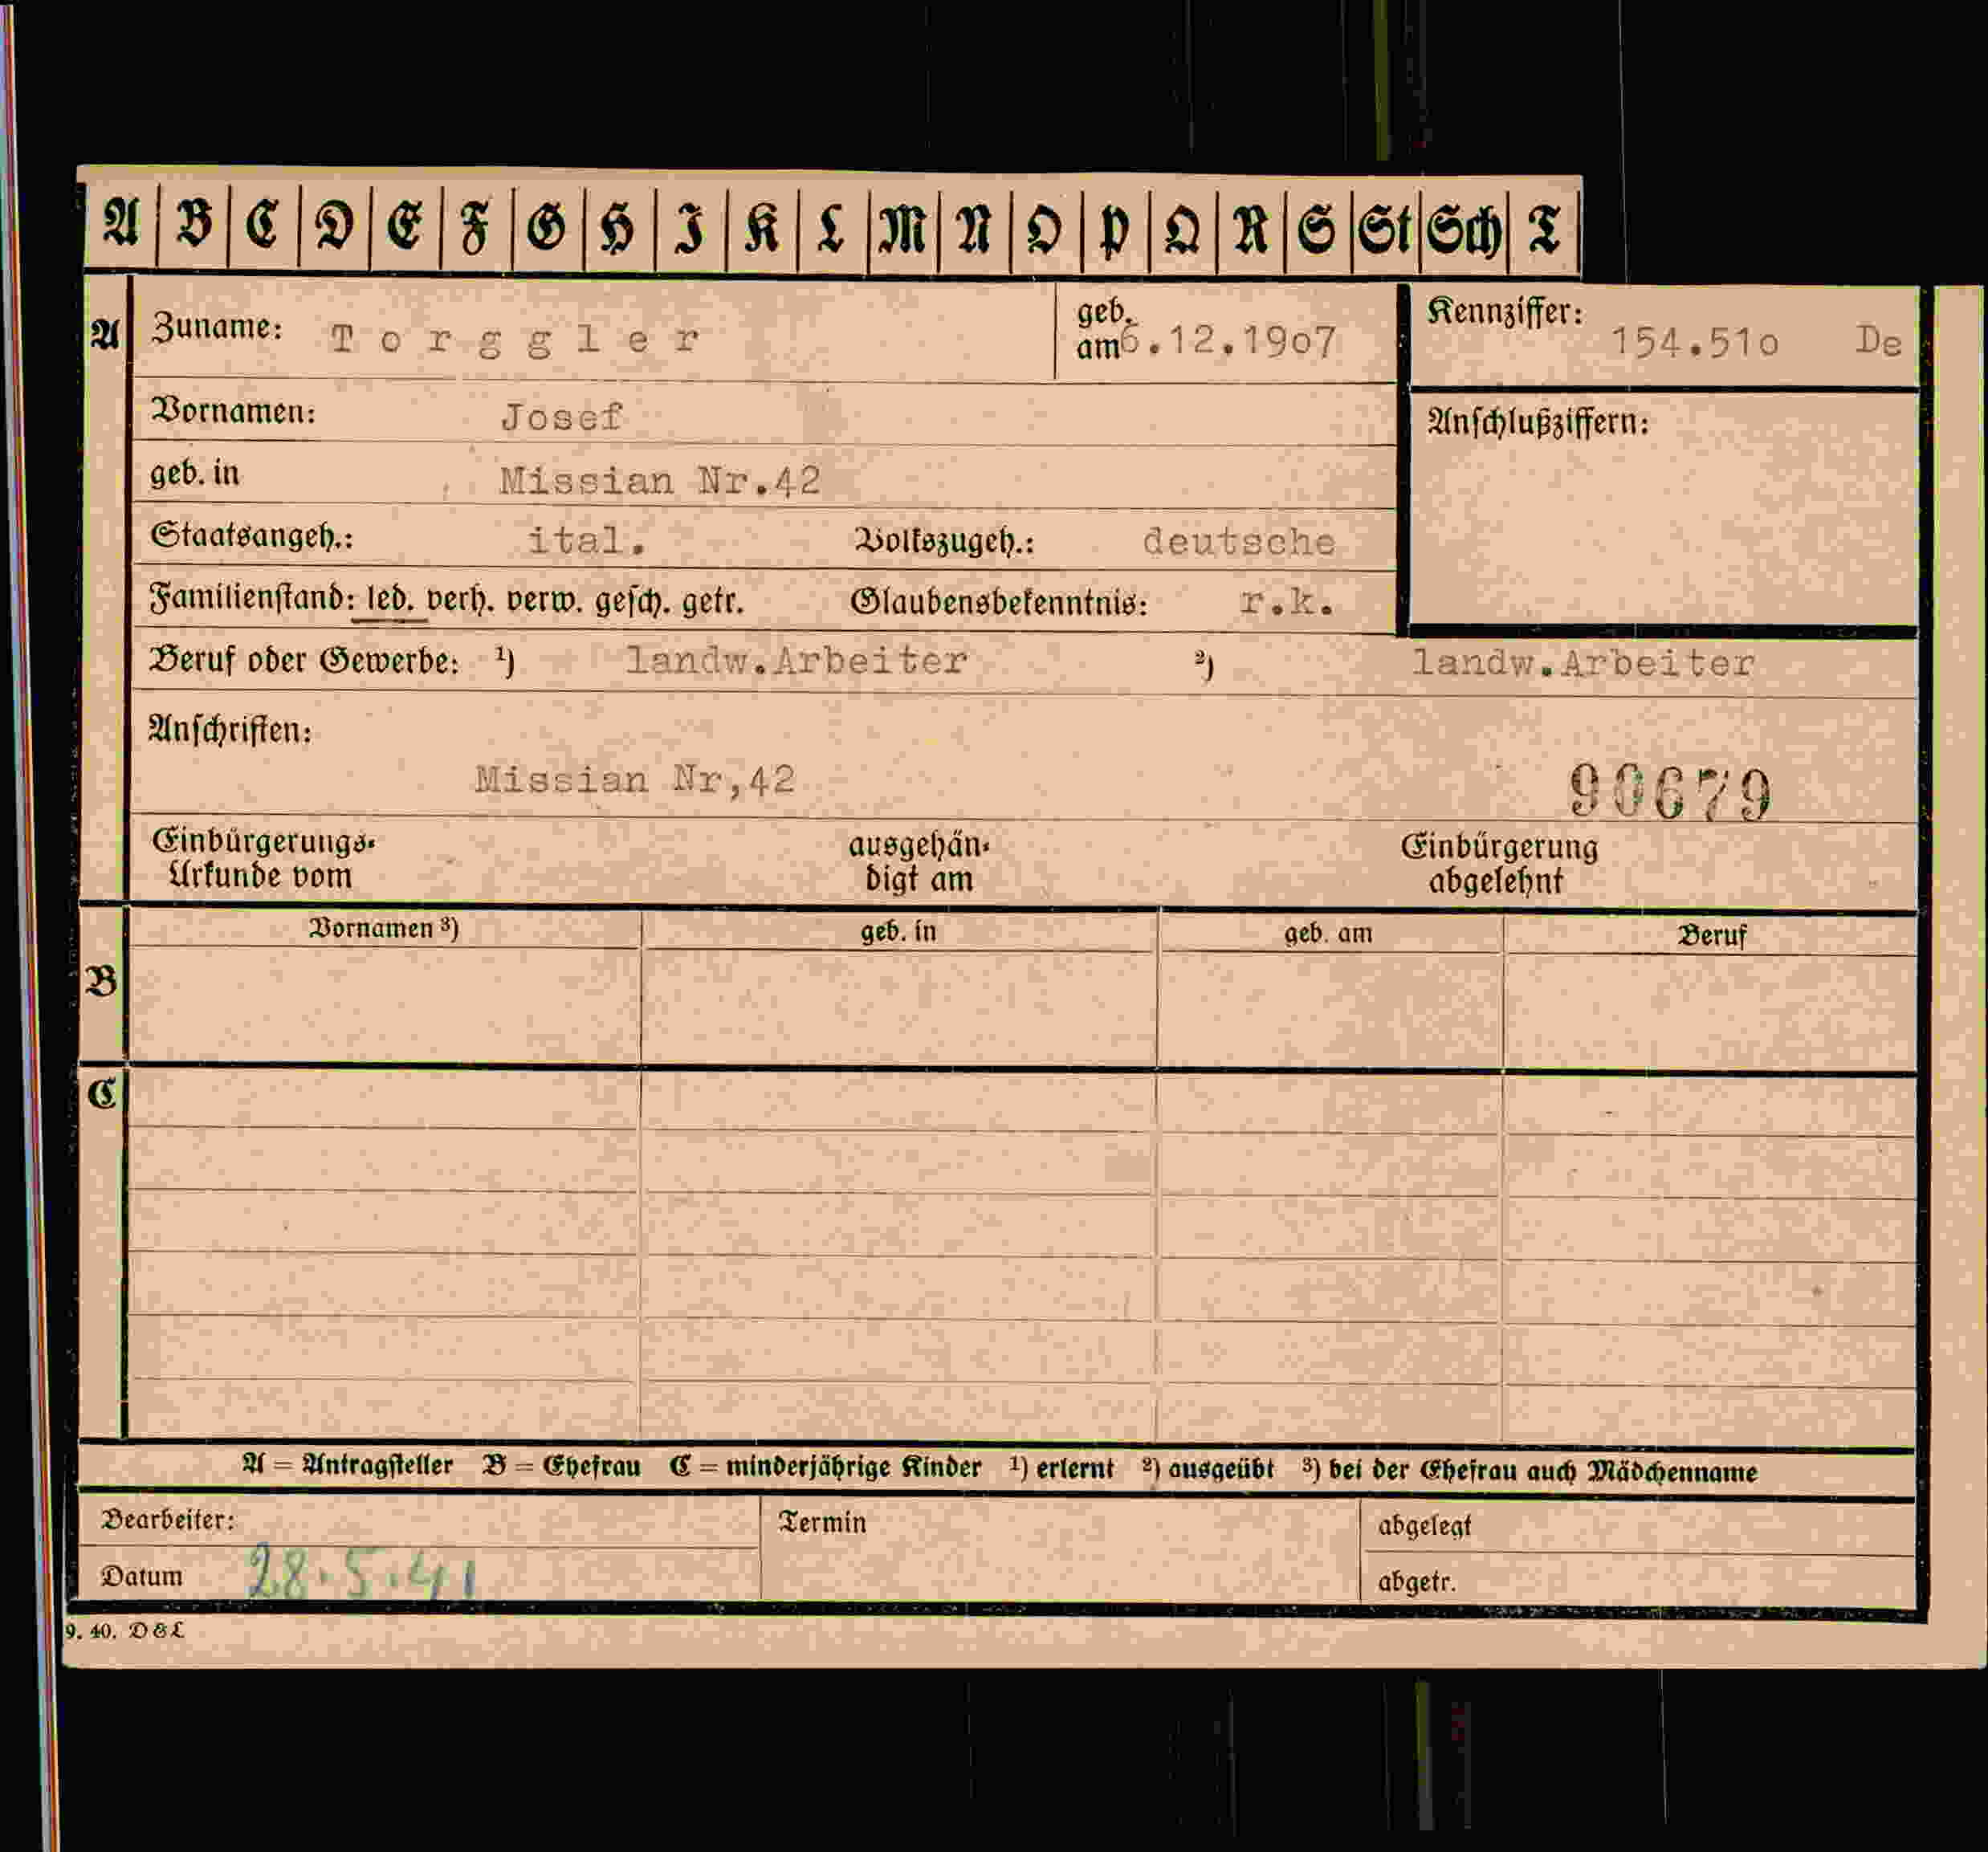 A B C D E F G H I K L M N O P Q R S St Sch T
A Zuname: Torggler geb. am 6.12.19o7 Kennziffer: 154.51o De
Vornamen: Josef Anschlußziffern:
geb. in Missian Nr.42
Staatsangeh.: ital. Volkszugeh.: deutsche
Familienstand: led. verh. verw. gesch. getr. Glaubensbekenntnis: r.k.
Beruf oder Gewerbe: ¹) landw.Arbeiter ²) landw.Arbeiter
Anschriften:
Missian Nr,42 90679
Einbürgerungs- ausgehän- Einbürgerung
Urkunde vom digt am abgelehnt
Vornamen ³) geb. in geb. am Beruf
B
C
A = Antragsteller B = Ehefrau C = minderjährige Kinder ¹) erlernt ²) ausgeübt ³) bei der Ehefrau auch Mädchenname
Bearbeiter: Termin abgelegt
Datum 28.5.41 abgetr.
9. 40. D & L